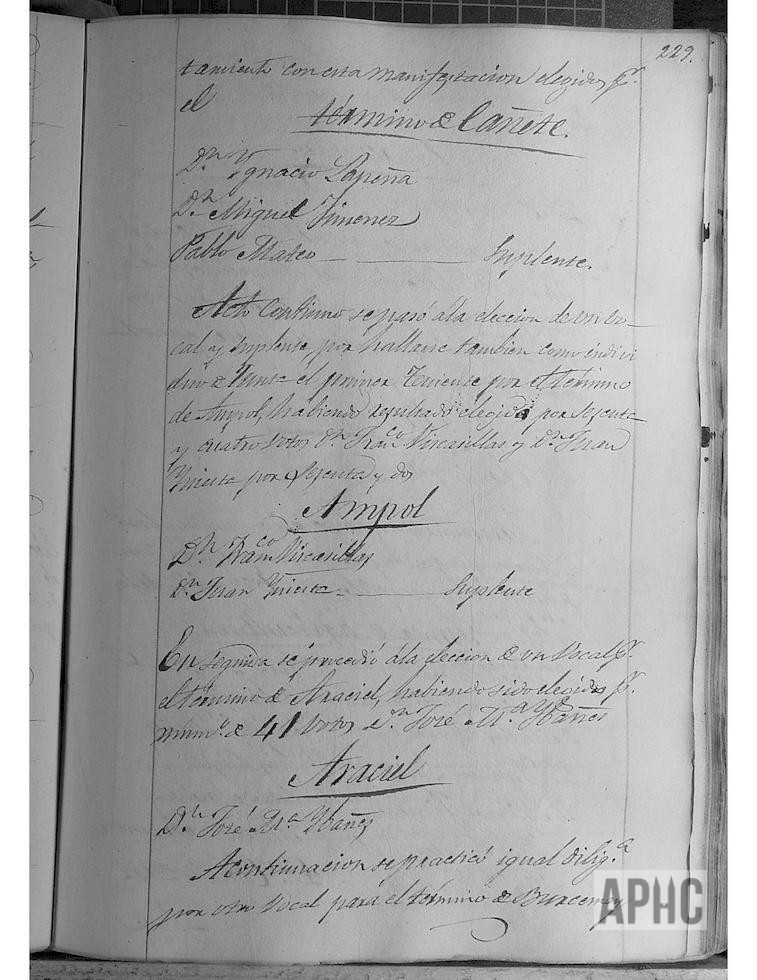 229.
tamiento con esta manifestacion elegidos pr.
el
término de Cañete.
Dn. Ygnacio Lapeña
Dn. Miguel Jimenez
Pablo Mateo — — Suplente.
Acto continuo se pasó á la eleccion de un vo-
cal y suplente por hallarse tambien como indivi
duo de Junta el primer Teniente por el término
de Ampol, habiendo resultado elegido por sesenta
y cuatro votos Dn. Franco. Vicasillas y Dn. Juan
por sesenta y dos
Ampol
Dn. Franco. Vicasillas
Dn. Juan — Suplente
En seguida se procedió á la eleccion de un Vocal pr.
el término de Araciel, habiendo sido elegido pr.
de 41 votos Dn. José Ma. Ybañes
Araciel
Dn. José Ma. Ybañes
A continuacion se practicó igual dilig.a
por otro Vocal para el término de Burcemay
APHC